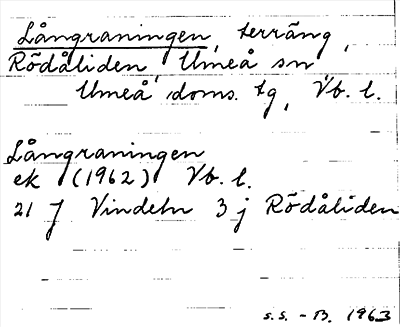 Långraningen, terräng,
Rödåliden, Umeå sn
Umeå doms. tg, Vb. l.
Långraningen
ek (1962) Vb. l.
21 J Vindeln 3 j Rödåliden
s.s. - B. 1963